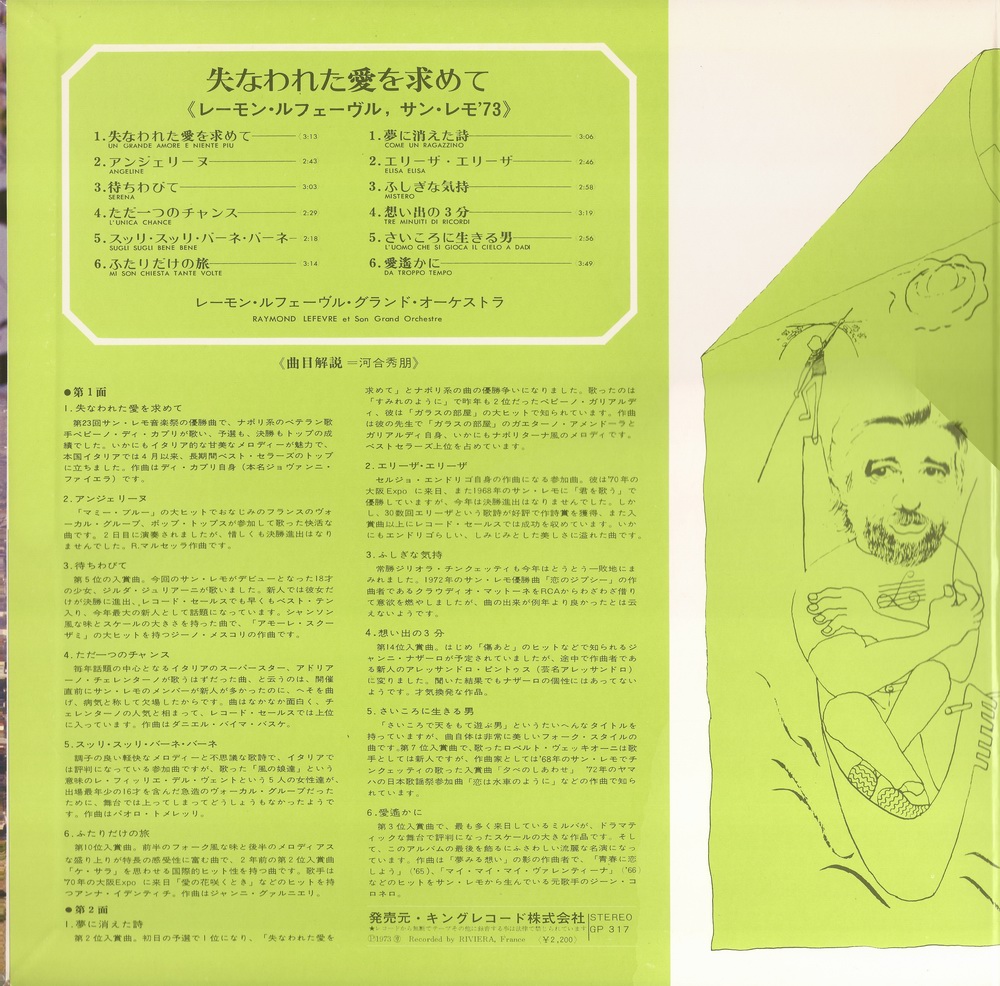 失なわれた愛を求めて
《レーモン・ルフェーヴル，サン・レモ'73》
1.失なわれた愛を求めて 3:13
UN GRANDE AMORE E NIENTE PIU
2.アンジェリーヌ 2:43
ANGELINE
3.待ちわびて 3:03
SERENA
4.ただ一つのチャンス 2:29
L'UNICA CHANCE
5.スッリ・スッリ・バーネ・バーネ 2:18
SUGLI SUGLI BENE BENE
6.ふたりだけの旅 3:14
MI SON CHIESTA TANTE VOLTE
1.夢に消えた詩 3:06
COME UN RAGAZZINO
2.エリーザ・エリーザ 2:46
ELISA ELISA
3.ふしぎな気持 2:58
MISTERO
4.想い出の3分 3:19
TRE MINUITI DI RICORDI
5.さいころに生きる男 2:56
L'UOMO CHE SI GIOCA IL CIELO A DADI
6.愛遙かに 3:49
DA TROPPO TEMPO
レーモン・ルフェーヴル・グランド・オーケストラ
RAYMOND LEFEVRE et Son Grand Orchestre
《曲目解説＝河合秀朋》
●第1面
1.失なわれた愛を求めて
第23回サン・レモ音楽祭の優勝曲で、ナポリ系のベテラン歌
手ペピーノ・ディ・カプリが歌い、予選も、決勝もトップの成
績でした。いかにもイタリア的な甘美なメロディーが魅力で、
本国イタリアでは4月以来、長期間ベスト・セラーズのトップ
に立ちました。作曲はディ・カプリ自身（本名ジョヴァンニ・
ファイエラ）です。
2.アンジェリーヌ
「マミー・ブルー」の大ヒットでおなじみのフランスのヴォ
ーカル・グループ、ポップ・トップスが参加して歌った快活な
曲です。2日目に演奏されましたが、惜しくも決勝進出はなり
ませんでした。R.マルセッラ作曲です。
3.待ちわびて
第5位の入賞曲。今回のサン・レモがデビューとなった18才
の少女、ジルダ・ジュリアーニが歌いました。新人では彼女だ
けが決勝に進出、レコード・セールスでも早くもベスト・テン
入り、今年最大の新人として話題になっています。シャンソン
風な味とスケールの大きさを持った曲で、「アモーレ・スクー
ザミ」の大ヒットを持つジーノ・メスコリの作曲です。
4.ただ一つのチャンス
毎年話題の中心となるイタリアのスーパースター、アドリア
ーノ・チェレンターノが歌うはずだった曲、と云うのは、開催
直前にサン・レモのメンバーが新人が多かったのに、へそを曲
げ、病気と称して欠場したからです。曲はなかなか面白く、チ
ェレンターノの人気と相まって、レコード・セールスでは上位
に入っています。作曲はダニエル・パイマ・パスケ。
5.スッリ・スッリ・バーネ・バーネ
調子の良い軽快なメロディーと不思議な歌詩で、イタリアで
は評判になっている参加曲ですが、歌った「風の娘達」という
意味のレ・フィッリエ・デル・ヴェントという5人の女性達が、
出場最年少の16才を含んだ急造のヴォーカル・グループだった
ために、舞台では上ってしまってどうしょうもなかったようで
す。作曲はパオロ・トメレッリ。
6.ふたりだけの旅
第10位入賞曲。前半のフォーク風な味と後半のメロディアス
な盛り上りが特長の感受性に富む曲で、2年前の第2位入賞曲
「ケ・サラ」を思わせる国際的ヒット性を持つ曲です。歌手は
'70年の大阪Expo に来日「愛の花咲くとき」などのヒットを持
つアンナ・イデンティチ。作曲はジャンニ・グァルニエリ。
●第2面
1.夢に消えた詩
第2位入賞曲。初日の予選で1位になり、「失なわれた愛を
求めて」とナポリ系の曲の優勝争いになりました。歌ったのは
「すみれのように」で昨年も2位だったペピーノ・ガリアルデ
ィ、彼は「ガラスの部屋」の大ヒットで知られています。作曲
は彼の先生で「ガラスの部屋」のガエターノ・アメンドーラと
ガリアルディ自身、いかにもナポリターナ風のメロディです。
ベストセラーズ上位を占めています。
2.エリーザ・エリーザ
セルジョ・エンドリゴ自身の作曲になる参加曲。彼は'70年の
大阪Expo に来日、また1968年のサン・レモに「君を歌う」で
優勝していますが、今年は決勝進出はなりませんでした。しか
し、30数回エリーザという歌詩が好評で作詩賞を獲得、また入
賞曲以上にレコード・セールスでは成功を収めています。いか
にもエンドリゴらしい、しみじみとした美しさに溢れた曲です。
3.ふしぎな気持
常勝ジリオラ・チンクェッティも今年はとうとう一敗地にま
みれました。1972年のサン・レモ優勝曲「恋のジプシー」の作
曲者であるクラウディオ・マットーネをRCAからわざわざ借り
て意欲を燃やしましたが、曲の出来が例年より良かったとは云
えないようです。
4.想い出の3分
第14位入賞曲。はじめ「傷あと」のヒットなどで知られるジ
ャンニ・ナザーロが予定されていましたが、途中で作曲者であ
る新人のアレッサンドロ・ピントゥス（芸名アレッサンドロ）
に変りました。聞いた結果でもナザーロの個性にはあってない
ようです。才気煥発な作品。
5.さいころに生きる男
「さいころで天をもて遊ぶ男」というたいへんなタイトルを
持っていますが、曲自体は非常に美しいフォーク・スタイルの
曲です。第7位入賞曲で、歌ったロベルト・ヴェッキオーニは歌
手としては新人ですが、作曲家としては'68年のサン・レモでチ
ンクェッティの歌った入賞曲「夕べのしあわせ」 '72年のヤマ
ハの日本歌謡祭参加曲「恋は水車のように」などの作曲で知ら
れています。
6.愛遙かに
第3位入賞曲で、最も多く来日しているミルバが、ドラマテ
ィックな舞台で評判になったスケールの大きな作品です。そし
て、このアルバムの最後を飾るにふさわしい流麗な名演になっ
ています。作曲は「夢みる想い」の影の作曲者で、「青春に恋
しよう」（'65）、「マイ・マイ・マイ・ヴァレンティーナ」（'66）
などのヒットをサン・レモから生んでいる元歌手のジーン・コ
ロネロ。
発売元・キングレコード株式会社 STEREO
★レコードから無断でテープその他に録音する事は法律で禁じられています GP 317
Ⓟ1973⑧ Recorded by RIVIERA, France （¥2,200）